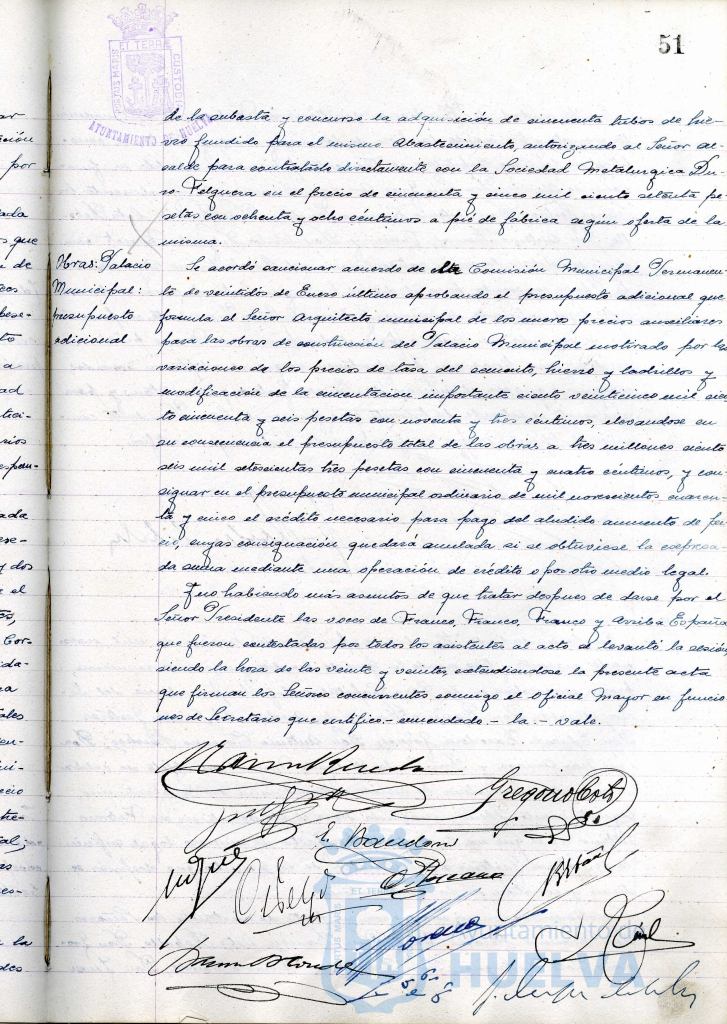 51
PORTUS MARIS ET TERRE CUSTODIA
AYUNTAMIENTO DE HUELVA
de la subasta y concurso la adquisición de cincuenta tubos de hie-
rro fundido para el mismo Abastecimiento, autorizando al Señor Al-
calde para contratarlo directamente con la Sociedad Metalurgica Du-
ro-Felguera en el precio de cincuenta y cinco mil ciento setenta pe-
setas con ochenta y ocho centimos a pié de fábrica según oferta de la
misma.
Obras: Palacio
Municipal:
presupuesto
adicional
Se acordó sancionar acuerdo de la Comisión Municipal Permanen-
te de veintidos de Enero último aprobando el presupuesto adicional que
formula el Señor Arquitecto municipal de los nuevos precios auxiliares
para las obras de construcción del Palacio Municipal motivado por las
variaciones de los precios de tasa del cemento, hierro y ladrillos y
modificación de la cimentacion importante ciento veinticinco mil cien-
to cincuenta y seis pesetas con noventa y tres céntimos, elevandose en
su consecuencia el presupuesto total de las obras a tres millones ciento
seis mil setecientas tres pesetas con cincuenta y cuatro céntimos, y con-
signar en el presupuesto municipal ordinario de mil novecientos cuaren-
ta y cinco el crédito necesario para pago del aludido aumento de pre-
cio, cuyas consignación quedará anulada si se obtuviese la expresa-
da suma mediante una operación de crédito o por otro medio legal.
Y no habiendo más asuntos de que tratar despues de darse por el
Señor Presidente las voces de Franco, Franco, Franco y Arriba España
que fueron contestadas por todos los asistentes al acto se levantó la sesión
siendo la hora de las veinte y veinte, extendiendose la presente acta
que firman los Señores concurrentes conmigo el Oficial Mayor en funcio-
nes de Secretario que certifico.- enmendado.- la.- vale.
Gregorio
E.
Ayuntamiento de
HUELVA